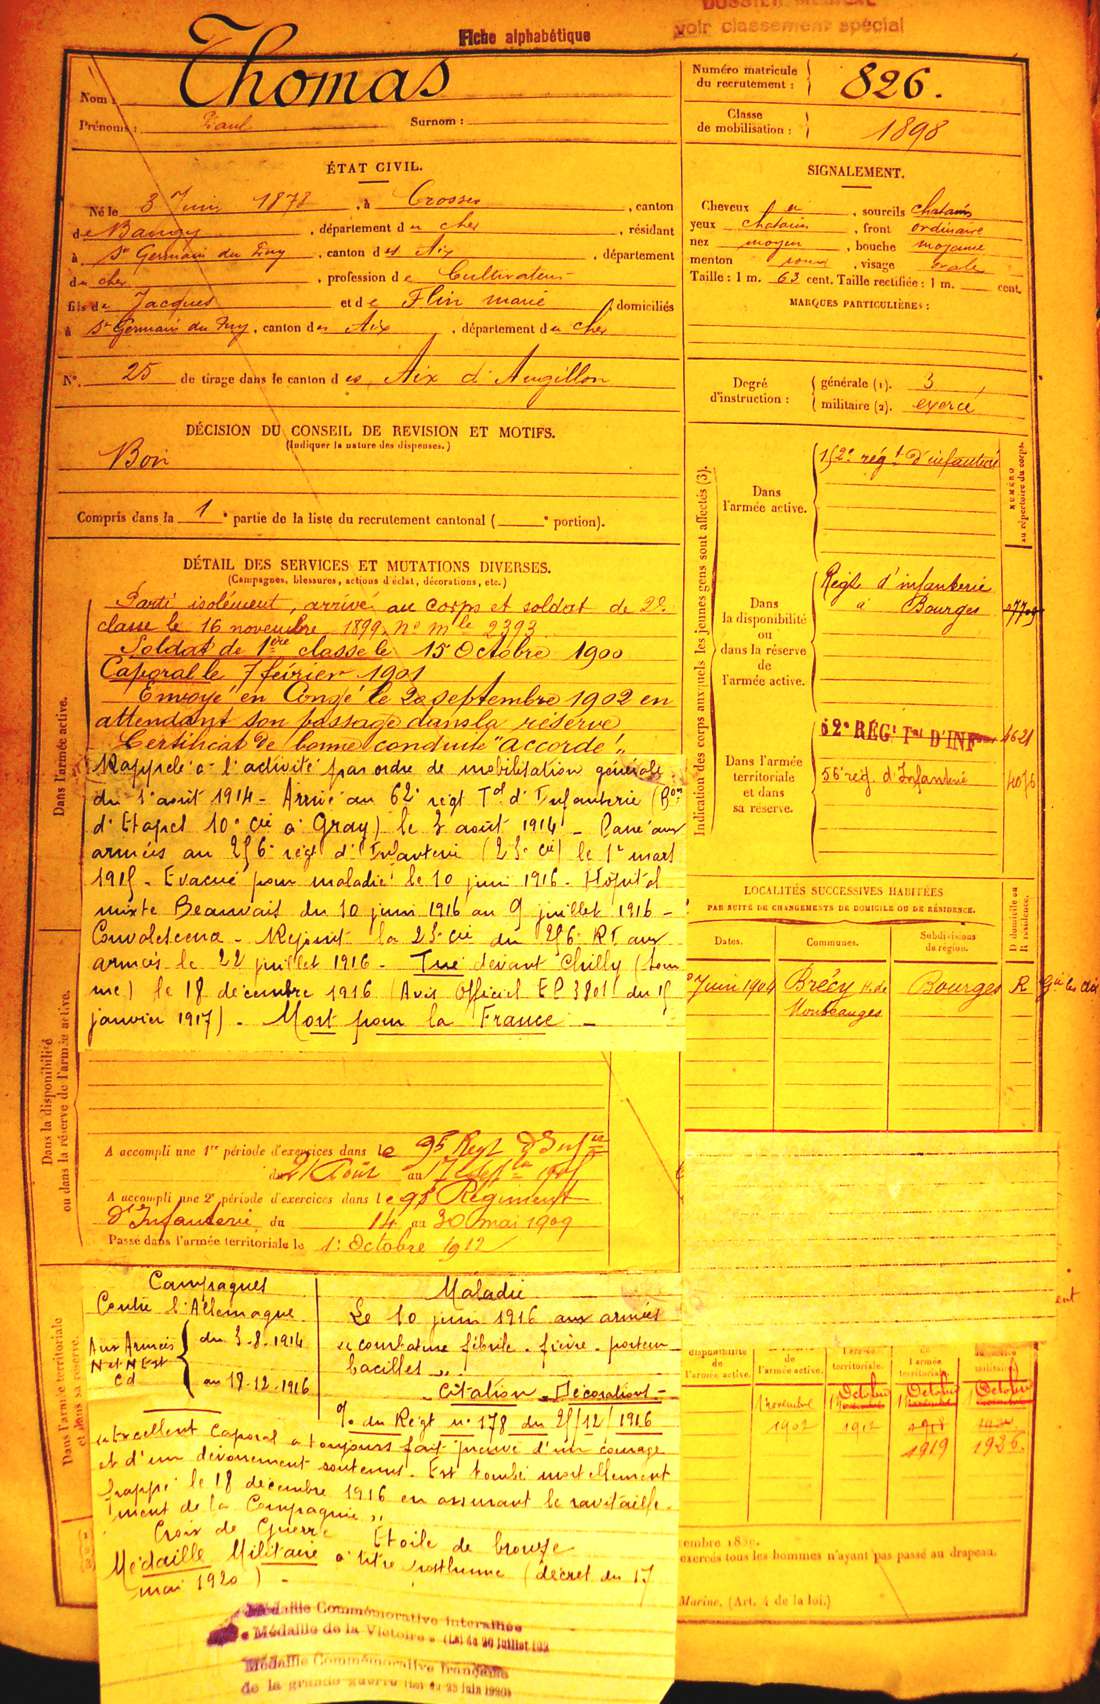 DOSSIER MÉDICAL
voir classement spécial
Fiche alphabétique
Nom : Thomas
Prénoms : Paul Surnom :
Numéro matricule du recrutement : 826.
Classe de mobilisation : 1898
ÉTAT CIVIL.
Né le 3 Juin 1878, à Crosses, canton
de Baugy, département du cher, résidant
à St Germain du Puy, canton des Aix, département
du cher, profession de Cultivateur
fils de Jacques et de Flin marie, domiciliés
à St Germain du Puy, canton des Aix, département du Cher
N°. 25 de tirage dans le canton des Aix d'Angillon
SIGNALEMENT.
Cheveux, sourcils chatains
yeux chatains, front ordinaire
nez moyen, bouche moyenne
menton rond, visage ovale
Taille : 1 m. 63 cent. Taille rectifiée : 1 m. cent.
MARQUES PARTICULIÈRES :
Degré d'instruction : générale (1). 3
militaire (2). exercé
DÉCISION DU CONSEIL DE REVISION ET MOTIFS.
(Indiquer la nature des dispenses.)
Bon
Compris dans la 1e partie de la liste du recrutement cantonal ( e portion).
DÉTAIL DES SERVICES ET MUTATIONS DIVERSES.
(Campagnes, blessures, actions d'éclat, décorations, etc.)
Dans l'armée active.
Parti isolément, arrivé au corps et soldat de 2e
classe le 16 novembre 1899. No mle 2393
Soldat de 1ère classe le 15 Octobre 1900
Caporal le 7 février 1901
Envoyé en Congé le 20 septembre 1902 en
attendant son passage dans la réserve
Certificat de bonne conduite "accordé"
Rappelé à l'activité par ordre de mobilisation générale
du 1er août 1914 - Arrivé au 62e régt Tal d'Infanterie (Bon
d'Etapes 10e Cie à Gray) le 3 août 1914 - Passé aux
armées au 256e régt d'Infanterie (23e Cie) le 1er mars
1915 - Evacué pour maladie le 10 juin 1916 - Hôpital
mixte Beauvais du 10 juin 1916 au 9 juillet 1916 -
Convalescence - Rejoint la 23e Cie du 256e RI aux
armées le 22 juillet 1916 - Tué devant Chilly (Som
me) le 18 décembre 1916 (Avis Officiel EP 3801 du 15
janvier 1917) - Mort pour la France -
Dans la disponibilité ou dans la réserve de l'armée active.
A accompli une 1re période d'exercices dans le 95 Regt d'Infie
du 21 Août au 17 sept
A accompli une 2e période d'exercices dans le 95 Régiment
d'Infanterie du 14 au 30 mai 1909
Passé dans l'armée territoriale le 1er Octobre 1912
Dans l'armée territoriale et dans sa réserve.
Campagnes
Contre l'Allemagne
Aux Armées N et N Est
du 3-8-1914
au 18-12-1916
Maladie
Le 10 juin 1916 aux armées
"courbature fébrile - fièvre - porteur
bacilles"
Citation - Décorations -
O/ du Régt n° 178 du 25/12/1916
"Excellent Caporal a toujours fait preuve d'un courage
et d'un dévouement soutenus. Est tombé mortellement
frappé le 18 décembre 1916 en assurant le ravitaille-
ment de la Compagnie"
Croix de Guerre Etoile de bronze
Médaille Militaire à titre posthume (décret du 17
mai 1920) -
Médaille Commémorative interalliée
« Médaille de la Victoire » (Loi du 20 juillet 192
Médaille Commémorative française
de la grande guerre (Loi du 23 juin 1920)
Indication des corps auxquels les jeunes gens sont affectés (3).
NUMÉRO au répertoire du corps.
Dans l'armée active.
152e régt d'infanterie
Dans la disponibilité ou dans la réserve de l'armée active.
Régt d'infanterie
à Bourges
Dans l'armée territoriale et dans sa réserve.
62e RÉGt Tal D'INF
56e rég. d'Infanterie
LOCALITÉS SUCCESSIVES HABITÉES
PAR SUITE DE CHANGEMENTS DE DOMICILE OU DE RÉSIDENCE.
Dates. Communes. Subdivisions de région. D domicile ou R résidence.
Juin 1904 Brécy Bourges R
ent
disponibilité de l'armée active.
de l'armée active.
l'armée territoriale.
de l'armée territoriale
militaire
1er novembre 1902
Octobre 1912
Octobre 1919
Octobre 1926.
embre 1889.
exercés tous les hommes n'ayant pas passé au drapeau.
Marine. (Art. 4 de la loi.)